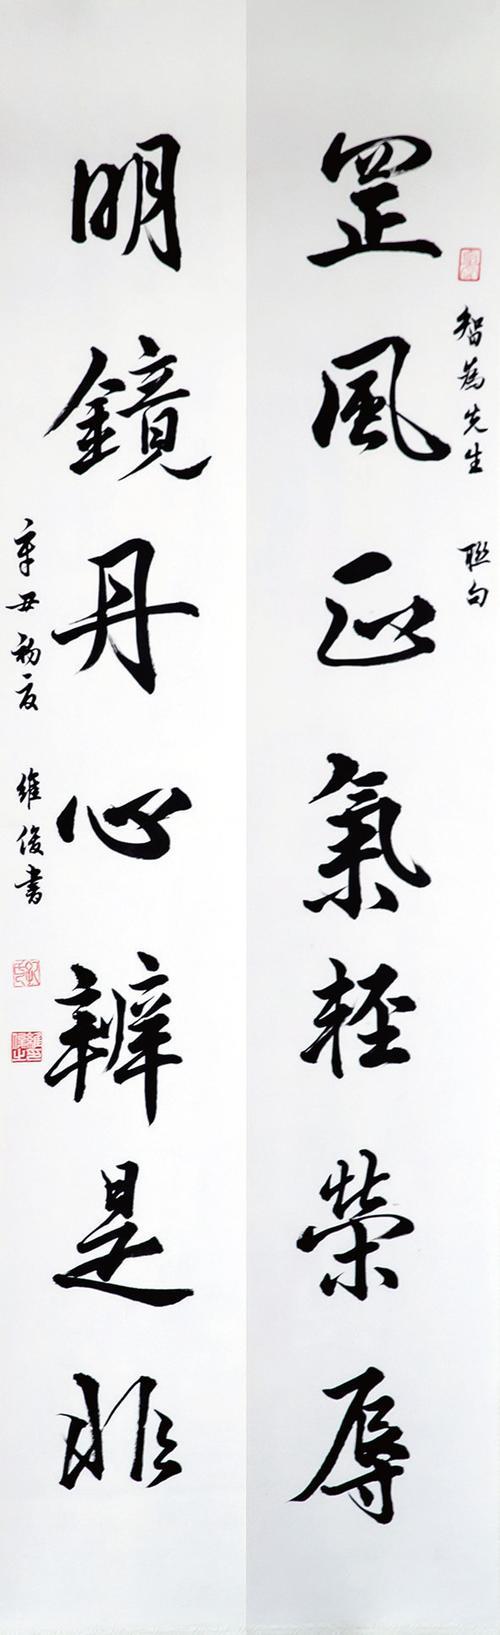 智為先生 聯句
罡風正氣輕榮辱
明鏡丹心辨是非
辛丑初夏 維俊書